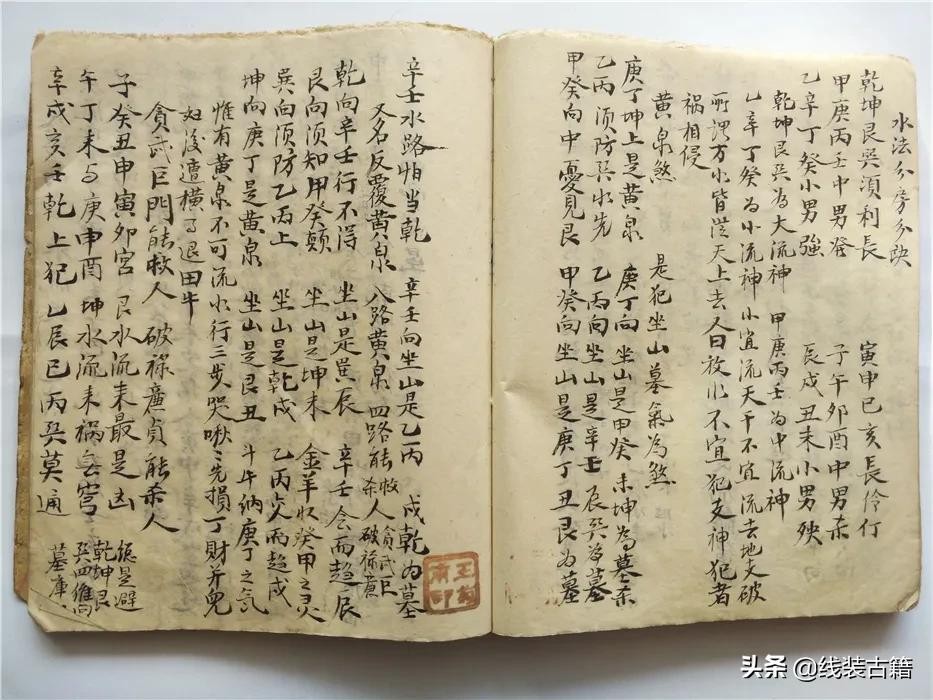 水法分房分訣
乾坤艮巽須利長 寅申巳亥長伶仃
甲庚丙壬中男發 子午卯酉中男杀
乙辛丁癸小男強 辰戌丑未小男殃
乾坤艮巽為大流神 甲庚丙壬為中流神
乙辛丁癸為小流神 小宜流天干不宜流去地支破
所謂万水皆從天上去 又曰放水不宜犯支神犯者
禍相侵
黄泉煞 是犯坐山墓氣為煞
庚丁坤上是黄泉 庚丁向坐山是甲癸 未坤為墓杀
乙丙須防巽水先 乙丙向坐山是辛壬 辰巽為墓
甲癸向中憂見艮 甲癸向坐山是庚丁 丑艮為墓
辛壬水路怕当乾 辛壬向坐山是乙丙 戌乾為墓
又名反覆黄泉 八路黄泉 四路能救杀人 貪武巨破祿廉
乾向辛壬行不淂 坐山是巽辰 辛壬会而趋辰
艮向须知甲癸颠 坐山是坤未 金羊收癸甲之灵
巽向须防乙丙上 坐山是乾戌 乙丙交而趋戌
坤向庚丁是黄泉 坐山是艮丑 斗牛纳庚丁之气
惟有黄泉不可流 水行三步哭啾〻 先損丁財并兒
妇 後遭横 退田牛
貪武巨門能救人 破祿廉貞能杀人
子癸丑申寅卯宮 艮水流来最是凶
午丁未 庚申酉 坤水流来禍 
辛戌亥壬乾上犯 乙辰巳丙巽莫通
 是避乾坤艮巽四维 墓库
王 印
头条 @线装古籍